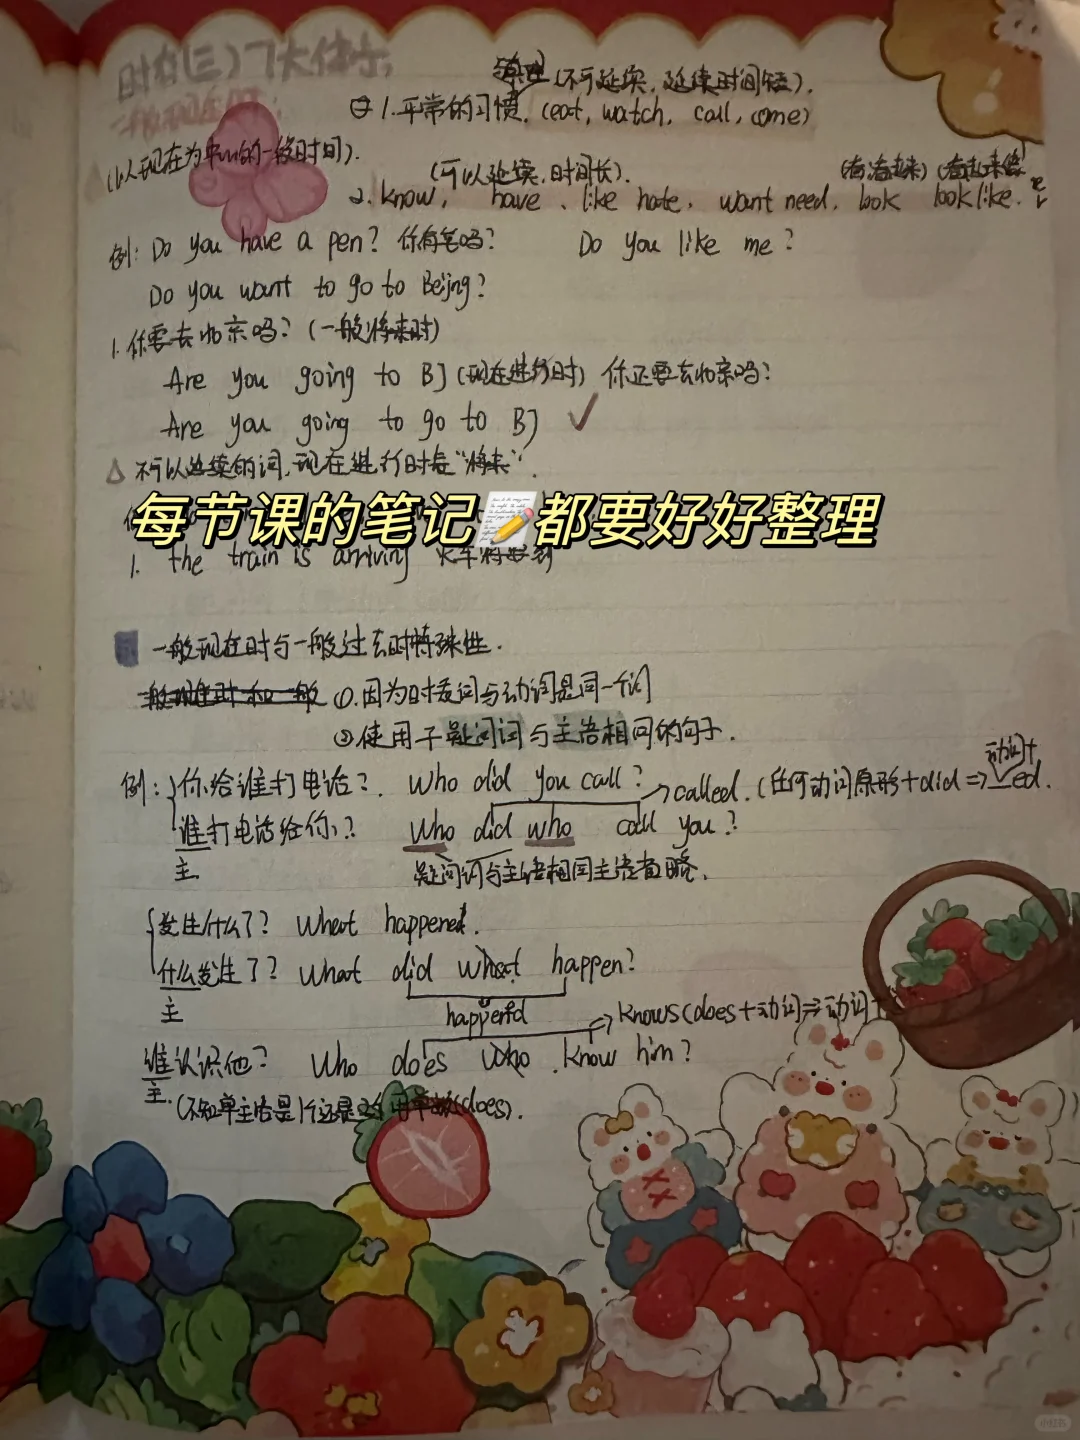 时态(三)7大体系
(不可延续,延续时间短).
1.平常的习惯.(eat, watch, call, come)
(以现在为中心的一般时间).
(可以延续,时间长).
(看看起来)(看起来像
2. know, have、like hate, want need, look look like.
例: Do you have a pen? 你有笔吗? Do you like me?
Do you want to go to Beijng?
1.你要去北京吗?(一般将来时)
Are you going to BJ (现在进行时) 你正要去北京吗?
Are you going to go to BJ ✓
△ 不可以延续的词,现在进行时表"将来".
每节课的笔记📝都要好好整理
1. the train is arriving 火车将要到
一般现在时与一般过去时特殊性.
①.因为时态词与动词是同一个词
②使用于疑问词与主语相同的句子.
动词+
例: 你给谁打电话?. Who did you call? →called. (任何动词原形+did⇒ ed.
谁打电话给你? Who did who call you?
主 疑问词与主语相同主语省略.
发生什么了? What happened.
什么发生了? What did what happen?
主 happened knows(does+动词⇒动词+
谁认识他? Who does who know him?
主.(不知单主语是1个还是多个用单数(does).
小红书